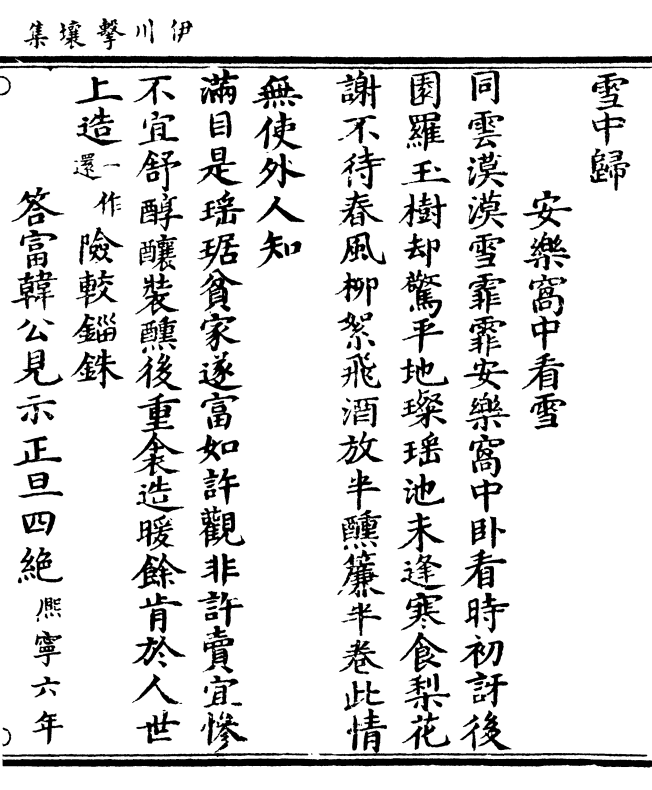 伊川擊壤集
雪中歸
安樂窩中看雪
同雲漠漠雪霏霏安樂窩中卧看時初訝後
園羅玉樹却驚平地璨瑶池未逢寒食梨花
謝不待春風柳絮飛酒放半醺簾半卷此情
無使外人知
滿目是瑶琚貧家遂富如許觀非許賣宜慘
不宜舒醇釀裝醺後重衾造暖餘肯於人世
上造一作還險較錙銖
答富韓公見示正旦四絶熈寧六年